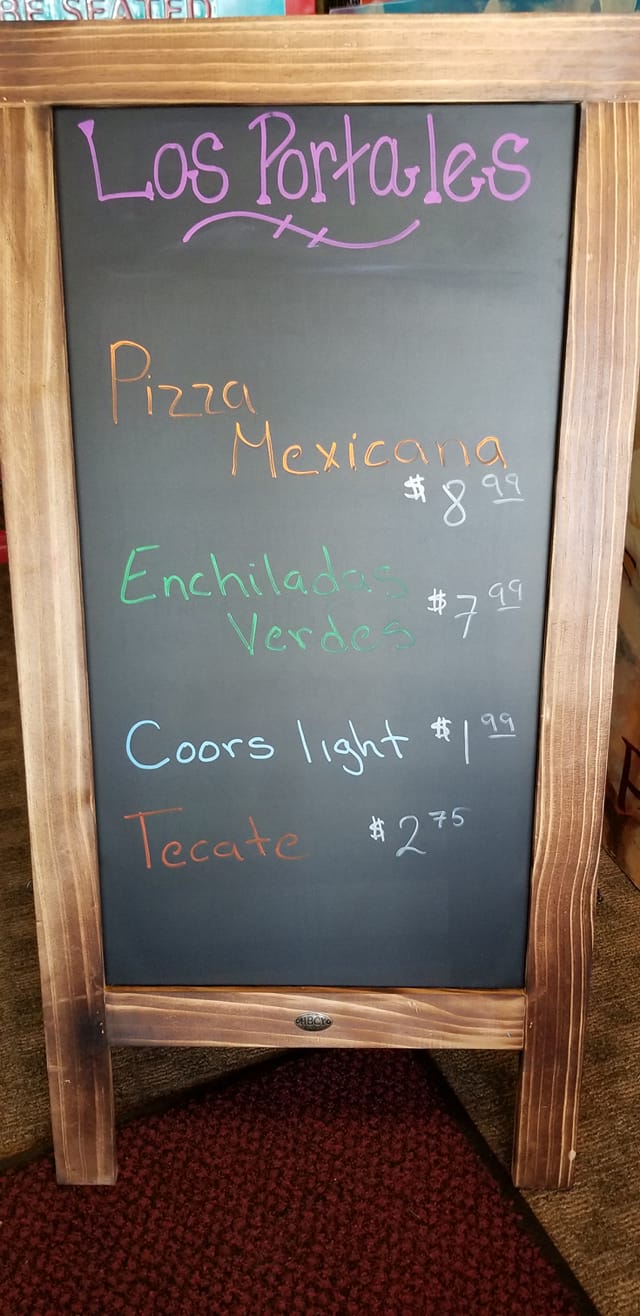 BE SEATED
Los Portales
Pizza
Mexicana
$8 99
Enchiladas
Verdes $7 99
Coors light $1 99
Tecate $2 75
HBCY